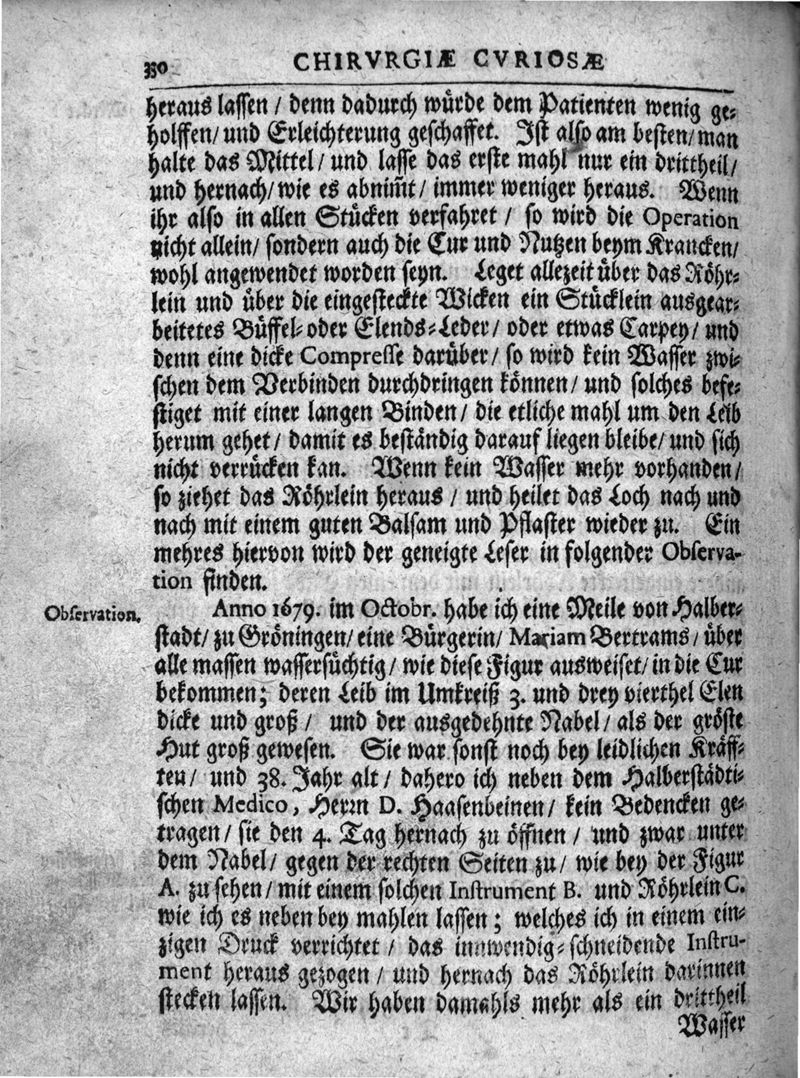 330 CHIRVRGIÆ CVRIOSÆ
heraus lassen / denn dadurch würde dem Patienten wenig ge-
holffen / und Erleichterung geschaffet. Ist also am besten / man
halte das Mittel / und lasse das erste mahl nur ein drittheil /
und hernach / wie es abnim̃t / immer weniger heraus. Wenn
ihr also in allen Stücken verfahret / so wird die Operation
nicht allein / sondern auch die Cur und Nutzen beym Krancken /
wohl angewendet worden seyn. Leget allezeit über das Röhr-
lein und über die eingesteckte Wicken ein Stücklein ausgear-
beitetes Büffel- oder Elends-Leder / oder etwas Carpey / und
denn eine dicke Compresse darüber / so wird kein Wasser zwi-
schen dem Verbinden durchdringen können / und solches befe-
stiget mit einer langen Binden / die etliche mahl um den Leib
herum gehet / damit es beständig darauf liegen bleibe / und sich
nicht verrücken kan. Wenn kein Wasser mehr vorhanden /
so ziehet das Röhrlein heraus / und heilet das Loch nach und
nach mit einem guten Balsam und Pflaster wieder zu. Ein
mehres hiervon wird der geneigte Leser in folgender Observa-
tion finden.
Observation. Anno 1679. im Octobr. habe ich eine Meile von Halber-
stadt / zu Gröningen / eine Bürgerin / Mariam Bertrams / über
alle massen wassersüchtig / wie diese Figur ausweiset / in die Cur
bekommen; deren Leib im Umkreiß 3. und drey vierthel Elen
dicke und groß / und der ausgedehnte Nabel / als der gröste
Hut groß gewesen. Sie war sonst noch bey leidlichen Kräff-
ten / und 38. Jahr alt / dahero ich neben dem Halberstädti-
schen Medico, Herrn D. Haasenbeinen / kein Bedencken ge-
tragen / sie den 4. Tag hernach zu öffnen / und zwar unter
dem Nabel / gegen der rechten Seiten zu / wie bey der Figur
A. zu sehen / mit einem solchen Instrument B. und Röhrlein C.
wie ich es neben bey mahlen lassen; welches ich in einem ein-
zigen Druck verrichtet / das innwendig-schneidende Instru-
ment heraus gezogen / und hernach das Röhrlein darinnen
stecken lassen. Wir haben damahls mehr als ein drittheil
Wasser